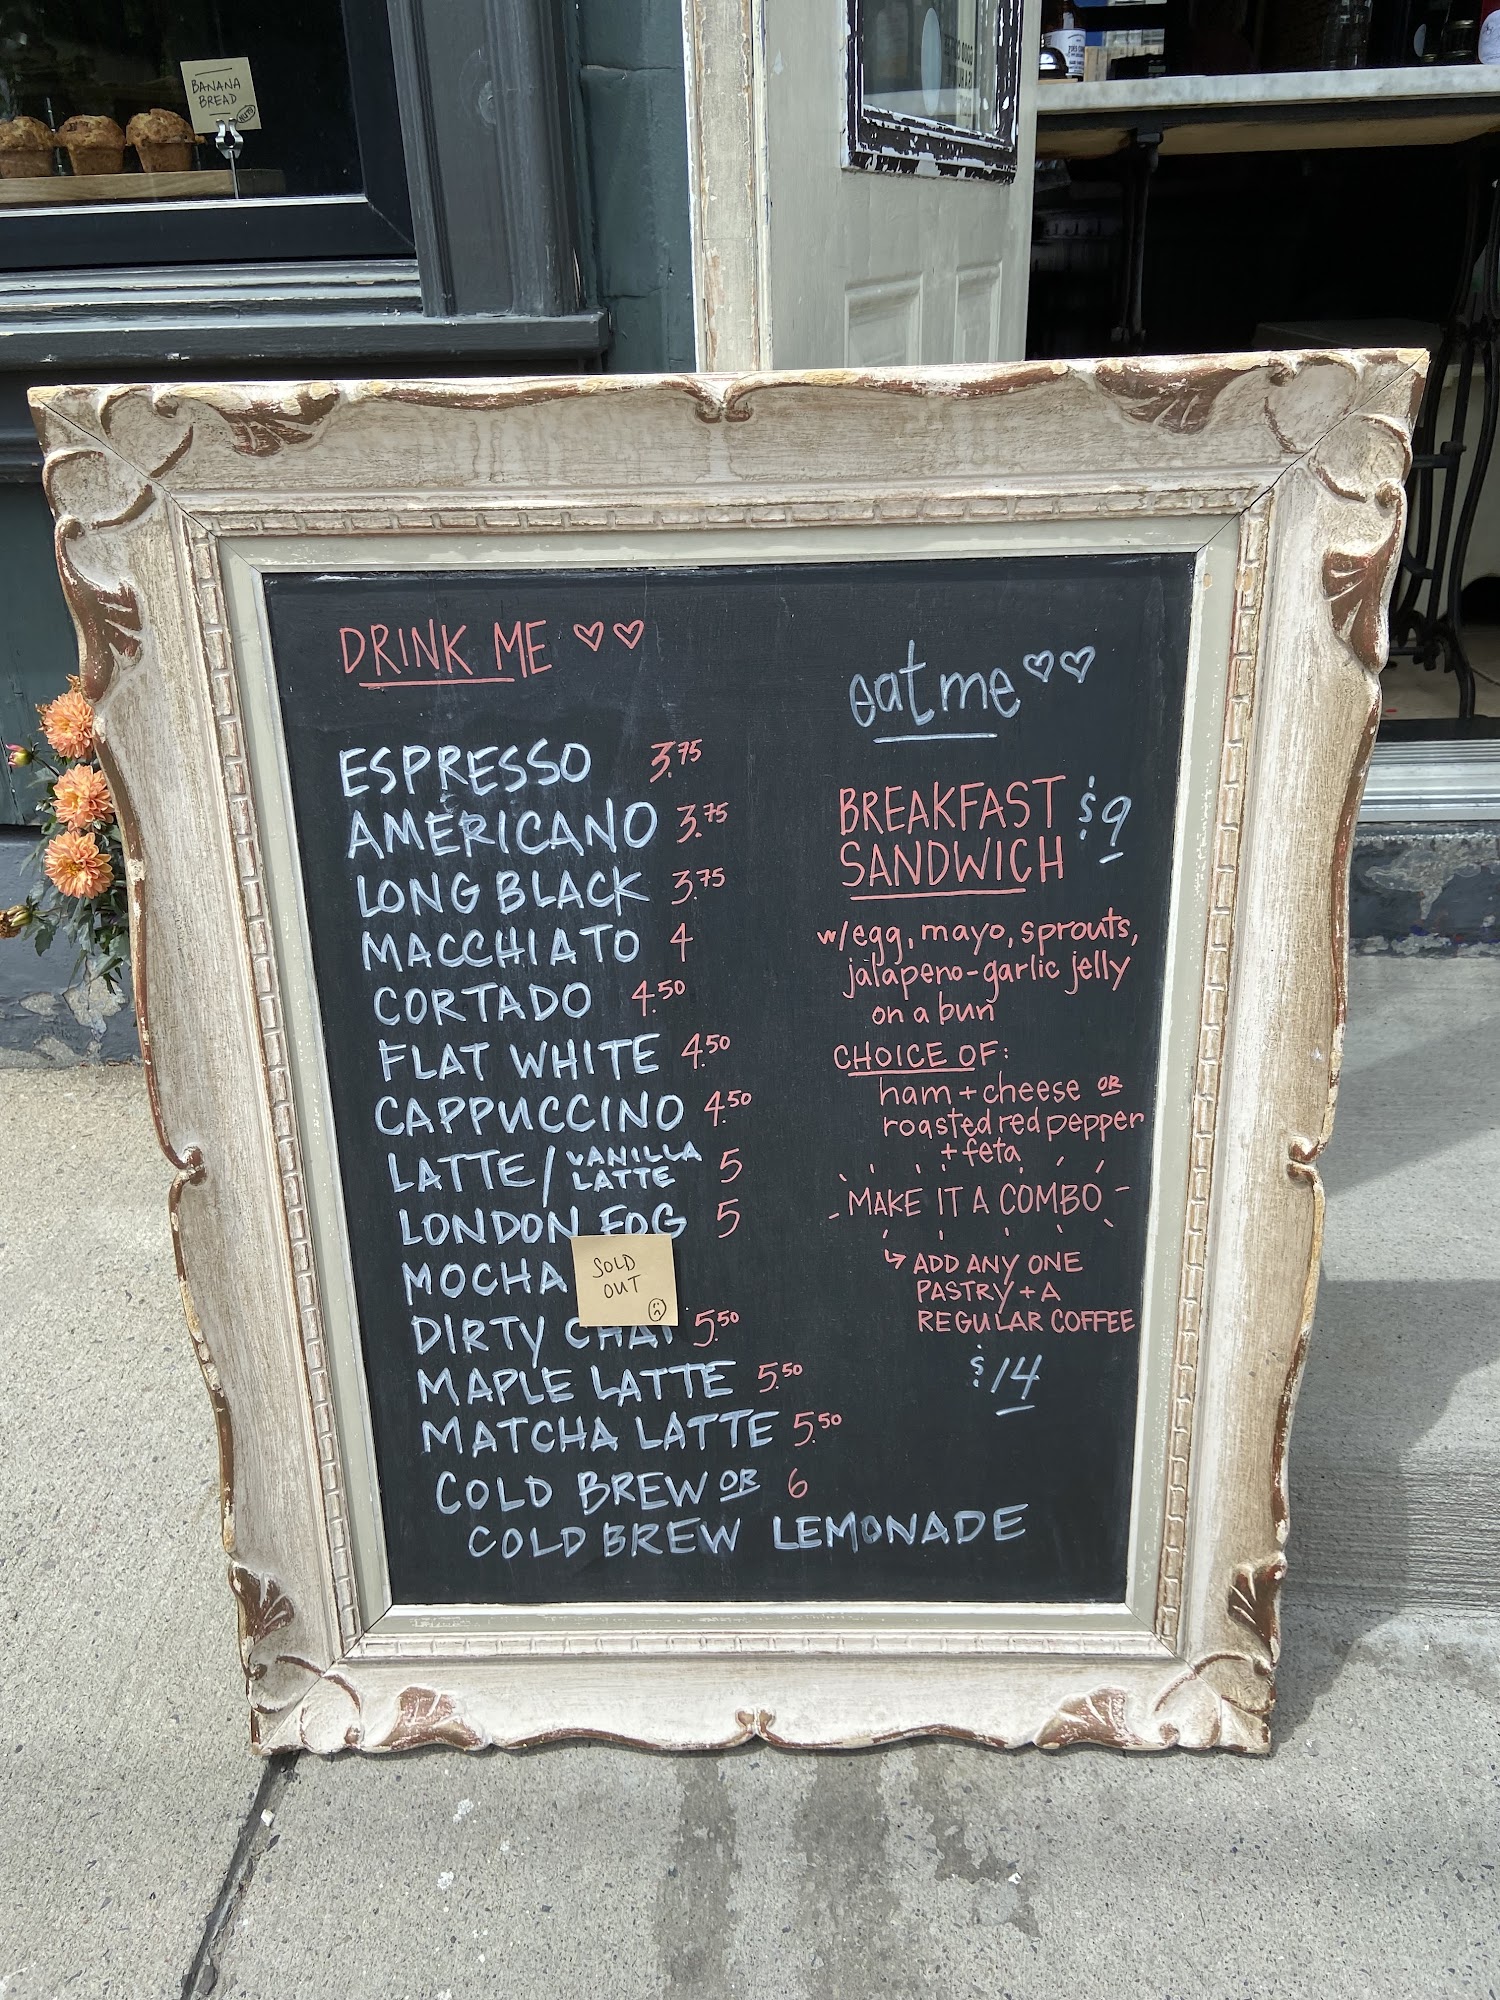 BANANA
BREAD
NUTS
DRINK ME ♡♡
ESPRESSO 3.75
AMERICANO 3.75
LONG BLACK 3.75
MACCHIATO 4
CORTADO 4.50
FLAT WHITE 4.50
CAPPUCCINO 4.50
LATTE/VANILLA LATTE 5
LONDON FOG 5
MOCHA
SOLD
OUT
DIRTY CHAI 5.50
MAPLE LATTE 5.50
MATCHA LATTE 5.50
COLD BREW OR 6
COLD BREW LEMONADE
eat me ♡♡
BREAKFAST $9
SANDWICH
w/egg, mayo, sprouts,
jalapeno-garlic jelly
on a bun
CHOICE OF:
ham + cheese OR
roasted red pepper
+ feta
MAKE IT A COMBO
↳ ADD ANY ONE
PASTRY + A
REGULAR COFFEE
$14